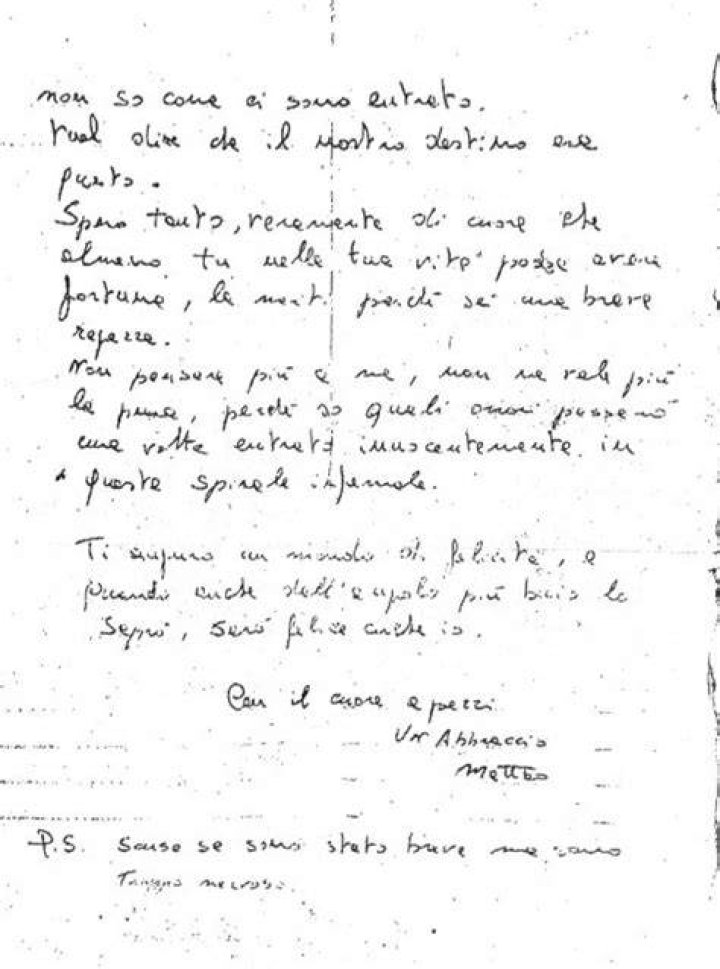 non so come ci sono entrato.
Vuol dire che il nostro destino era
questo.
Spero tanto, veramente di cuore che
almeno tu nella tua vita possa avere
fortuna, la meriti perché sei una brava
ragazza.
Non pensare più a me, non ne vale più
la pena, perché so quali onori
una volta entrato innocentemente in
questa spirale infernale.
Ti auguro un mondo di felicità, e
quando anche dall'angolo più buio lo
saprò, sarò felice anche io.
Con il cuore a pezzi
Un Abbraccio
Matteo
P.S. Scusa se sono stato breve ma sono
Troppo nervoso.